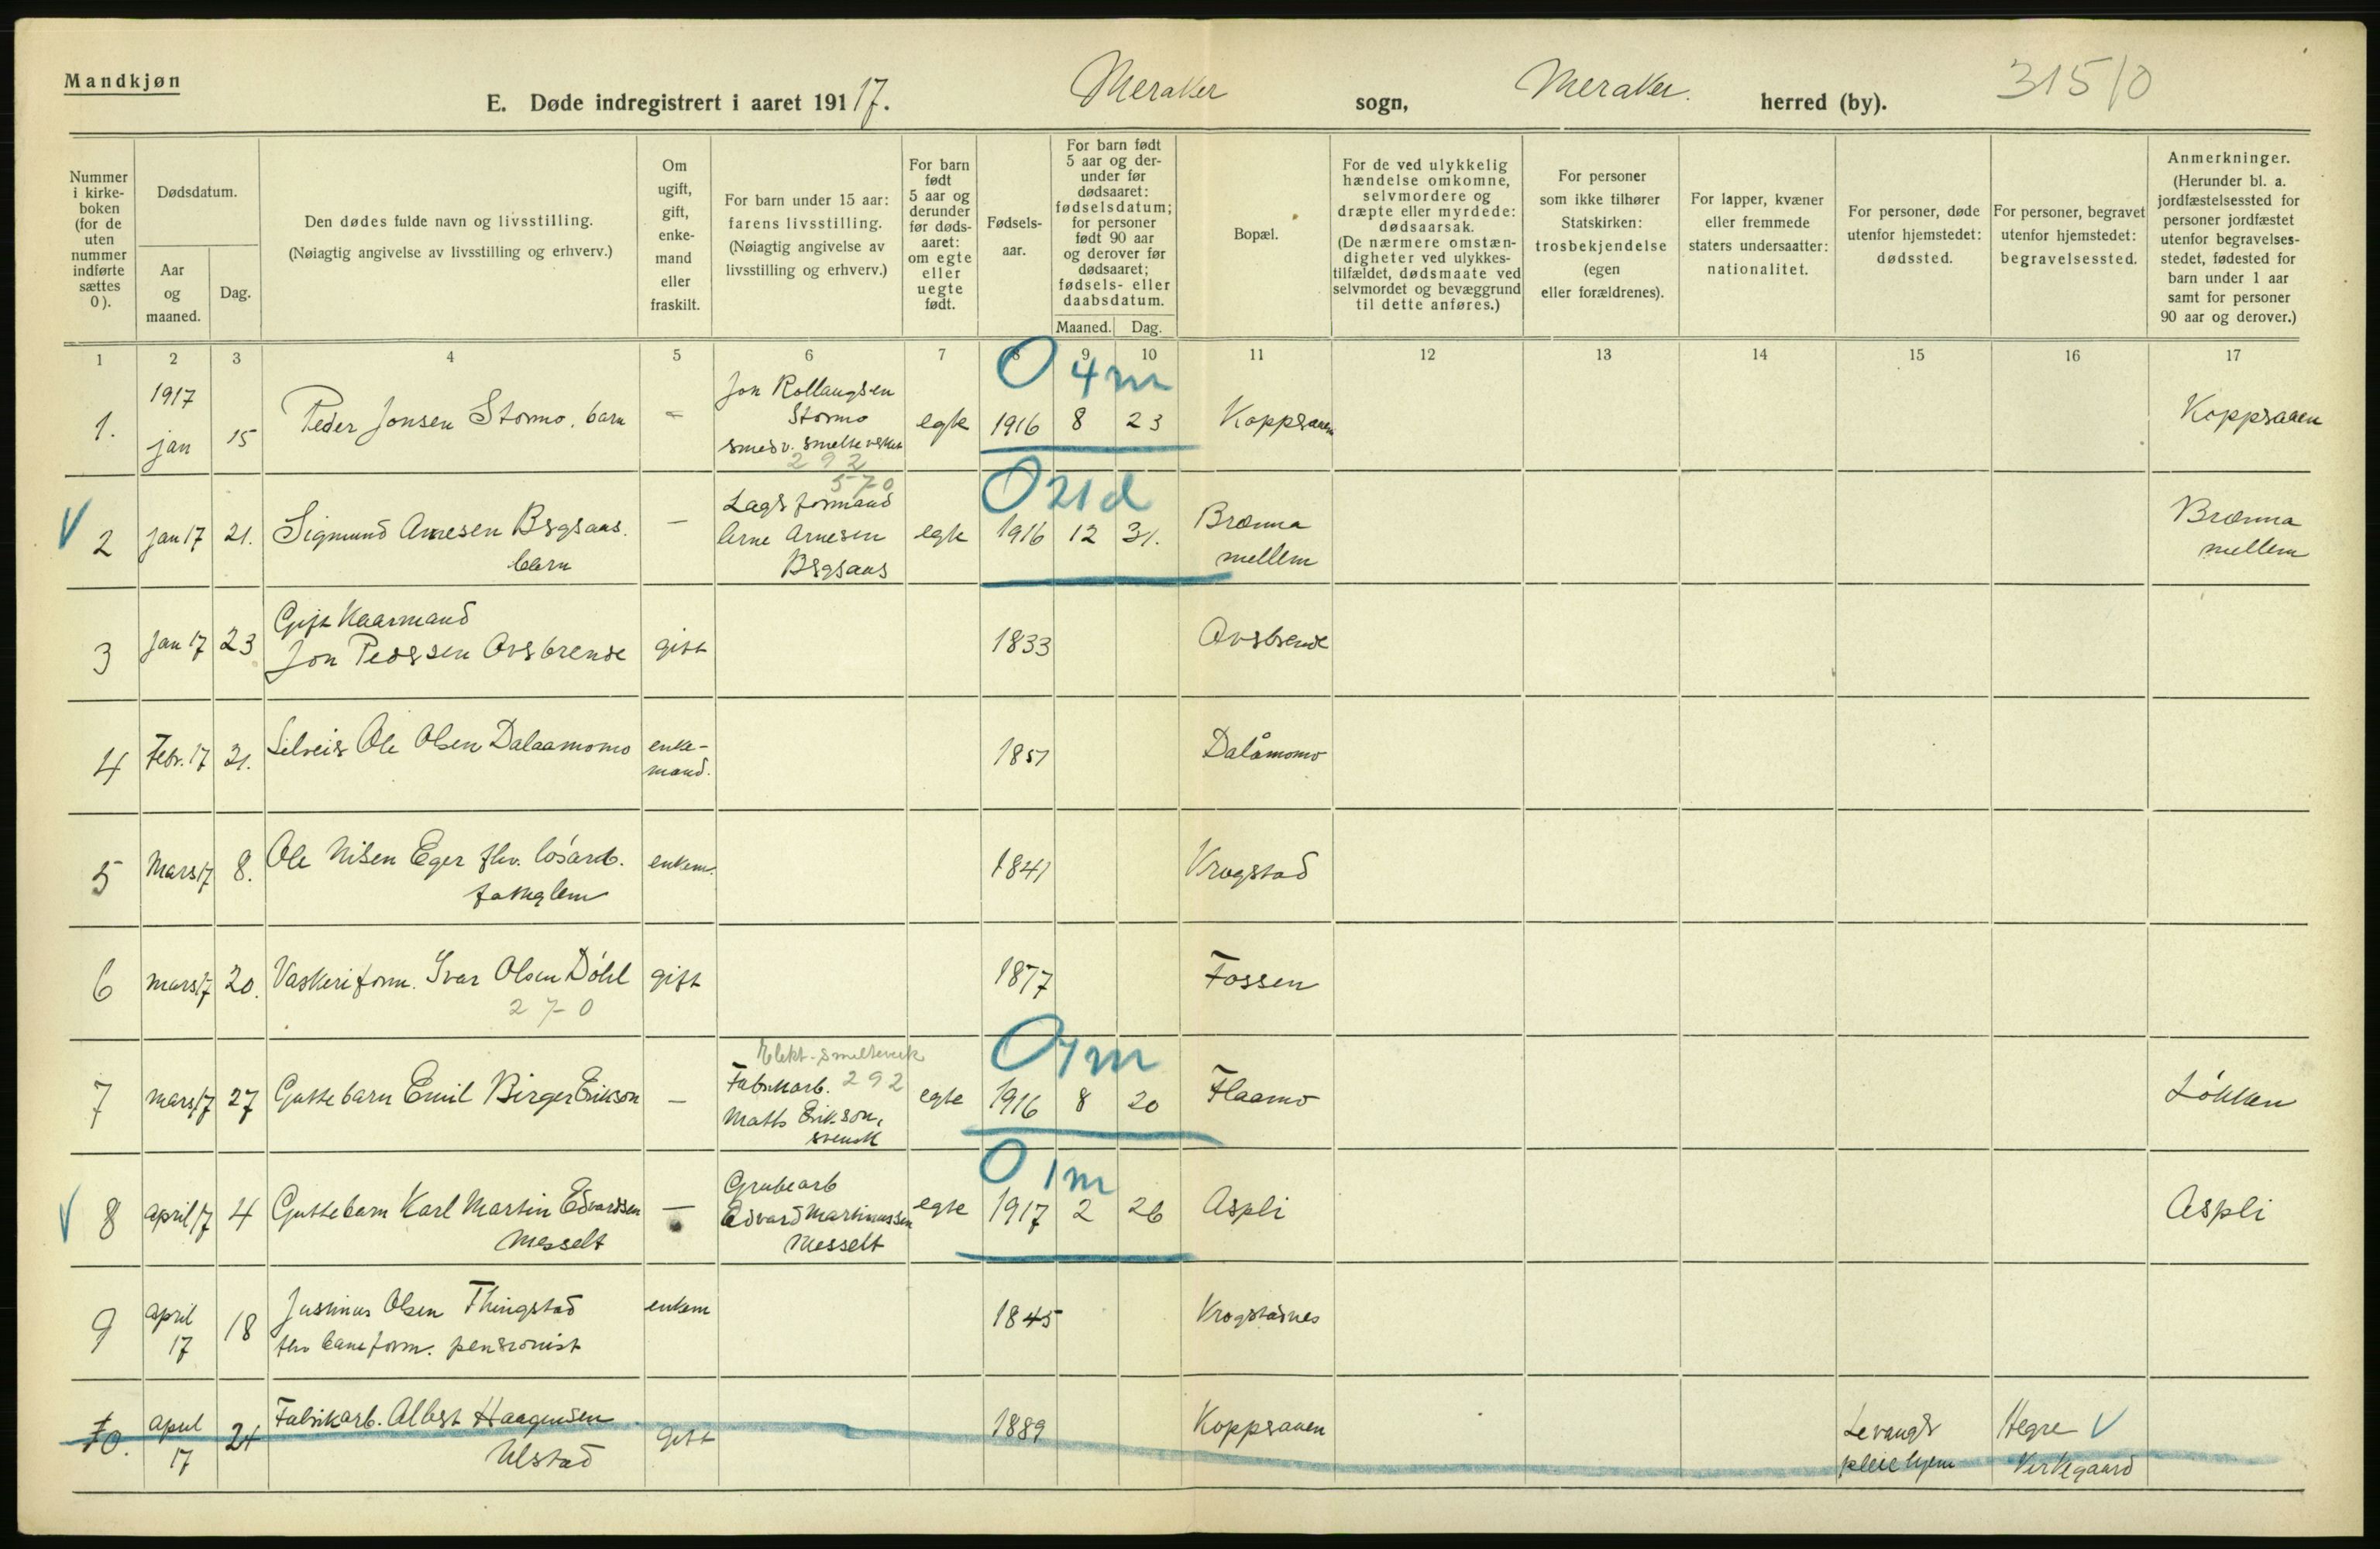 Mandkjøn
E. Døde indregistrert i aaret 19117. Meraker sogn, Meraker. herred (by). 315/0
Nummer i kirke-boken (for de uten nummer indførte sættes 0).
Dødsdatum.
Aar og maaned.
Dag.
Den dødes fulde navn og livsstilling.
(Nøiagtig angivelse av livsstilling og erhverv.)
Om ugift, gift, enke-mand eller fraskilt.
For barn under 15 aar: farens livsstilling. (Nøiagtig angivelse av livsstilling og erhverv.)
For barn født 5 aar og derunder før døds-aaret: om egte eller uegte født.
Fødsels-aar.
For barn født 5 aar og der-under før dødsaaret: fødselsdatum; for personer født 90 aar og derover før dødsaaret; fødsels- eller daabsdatum.
Maaned. Dag.
Bopæl.
For de ved ulykkelig hændelse omkomne, selvmordere og dræpte eller myrdede: dødsaarsak. (De nærmere omstæn-digheter ved ulykkes-tilfældet, dødsmaate ved selvmordet og bevæggrund til dette anføres.)
For personer som ikke tilhører Statskirken: trosbekjendelse (egen eller forældrenes).
For lapper, kvæner eller fremmede staters undersaatter: nationalitet.
For personer, døde utenfor hjemstedet: dødssted.
For personer, begravet utenfor hjemstedet: begravelsessted.
Anmerkninger. (Herunder bl. a. jordfæstelsessted for personer jordfæstet utenfor begravelses-stedet, fødested for barn under 1 aar samt for personer 90 aar og derover.)
1 2 3 4 5 6 7 8 9 10 11 12 13 14 15 16 17
0 4m
1. 1917 jan 15 Peder Jonsen Stormo. barn - Jon Rollaugsen Stormo smed v. smelteverket 292 egte 1916 8 23 Koppraaen Koppraaen
0 21d
V 2 jan 17 21. Sigmund Arnesen Bygsaas. barn - 570 Lagsformand Arne Arnesen Bygsaas egte 1916 12 31. Brænna mellem Brænna mellem
3 jan 17 23 Gift Kaarmand Jon Pedersen Avsbrende gift 1833 Avsbrende
4 Febr. 17 21. Selveier Ole Olsen Dalaamomo enke-mand. 1851 Dalåmomo
5 Mars 17 8. Ole Nilsen Eger fhv. løsarb. enkem. 1841 Krogstad
6 mars 17 20. Vaskeriform. Ivar Olsen Døhl gift 1877 Fossen
270
0 7m
7 mars 17 27 Guttebarn Emil Birger Erikson - Elekt. smelteverk Fabrikarb. 292 Matts Erikson, svensk egte 1916 8 20 Flaamo Løkken
0 1m
V 8 april 17 4 Guttebarn Karl Martin Edvardsen Messelt - Grubearb Edvard Martinussen Messelt egte 1917 2 26 Aspli Aspli
9 april 17 18 Justinus Olsen Thingstad fhv baneform. pensionist enkem 1845 Krogstadnes
10. april 17 24 Fabrikarb. Albert Haagensen Ulstad gift 1889 Koppraaen Levanger pleiehjem Hegre V Kirkegaard